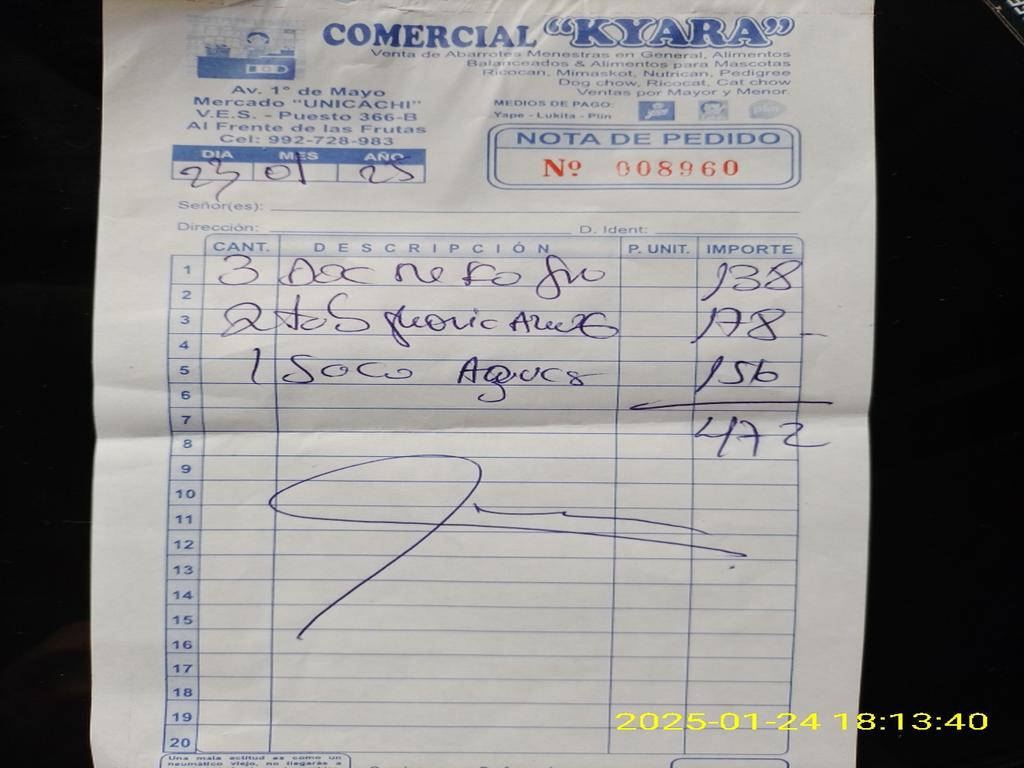 COMERCIAL "KYARA"
Venta de Abarrotes Menestras en General, Alimentos
Balanceados & Alimentos para Mascotas
Ricocan, Mimaskot, Nutrican, Pedigree
Dog chow, Ricocat, Cat chow
Ventas por Mayor y Menor.
Av. 1° de Mayo
Mercado "UNICACHI"
V.E.S. - Puesto 366-B
Al Frente de las Frutas
Cel: 992-728-983
MEDIOS DE PAGO:
Yape - Lukita - Plin
NOTA DE PEDIDO
Nº 008960
DIA MES AÑO
23 01 25
Señor(es):
Dirección: D. Ident:
CANT. DESCRIPCIÓN P. UNIT. IMPORTE
1 3 138
2
3 2 178
4
5 1 Saco 156
6
7 472
8
9
10
11
12
13
14
15
16
17
18
19
20
Una mala actitud es como un
neumático viejo, no llegarás a
2025-01-24 18:13:40